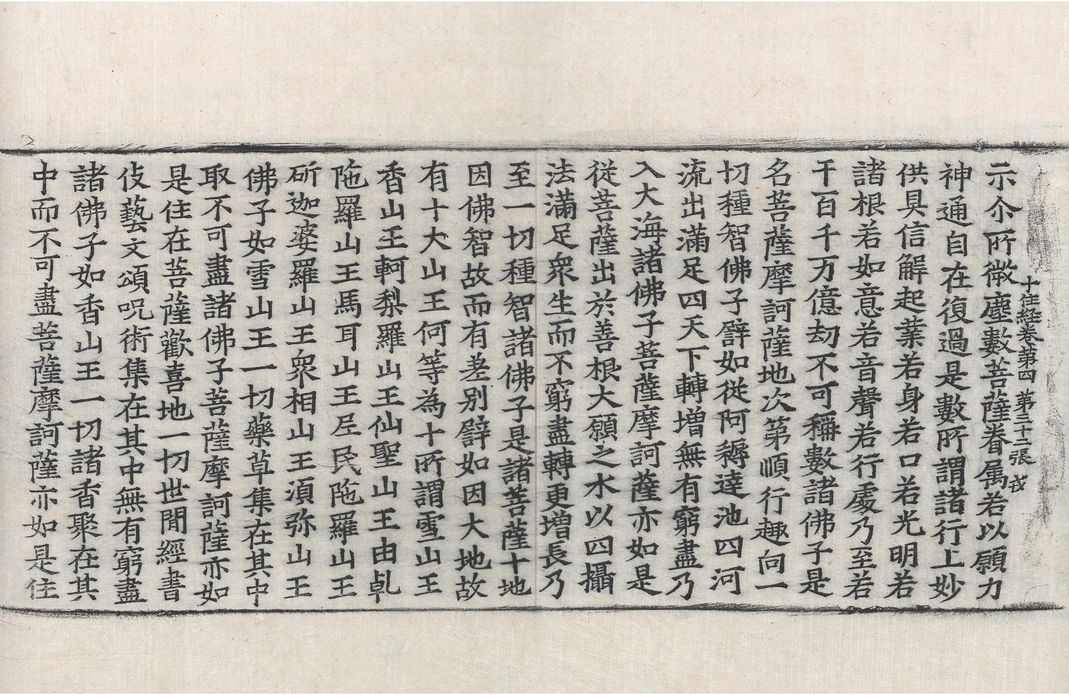 十住経卷第四 第三十二張
示尒所微塵數菩薩眷属若以願力
神通自在復過是數所謂諸行上妙
供具信解起業若身若口若光明若
諸根若如意若音聲若行處乃至若
干百千万億劫不可稱數諸佛子是
名菩薩摩訶薩地次第順行趣向一
切種智佛子譬如從阿耨達池四河
流出滿足四天下轉增無有窮盡乃
入大海諸佛子菩薩摩訶薩亦如是
從菩薩出於善根大願之水以四攝
法滿足衆生而不窮盡轉更增長乃
至一切種智諸佛子是諸菩薩十地
因佛智故而有差别譬如因大地故
有十大山王何等為十所謂雪山王
香山王軻梨羅山王仙聖山王由乹
陁羅山王馬耳山王尼民陁羅山王
斫迦婆羅山王衆相山王湏弥山王
佛子如雪山王一切藥草集在其中
取不可盡諸佛子菩薩摩訶薩亦如
是住在菩薩歡喜地一切世閒經書
伎藝文頌呪術集在其中無有窮盡
諸佛子如香山王一切諸香聚在其
中而不可盡菩薩摩訶薩亦如是住